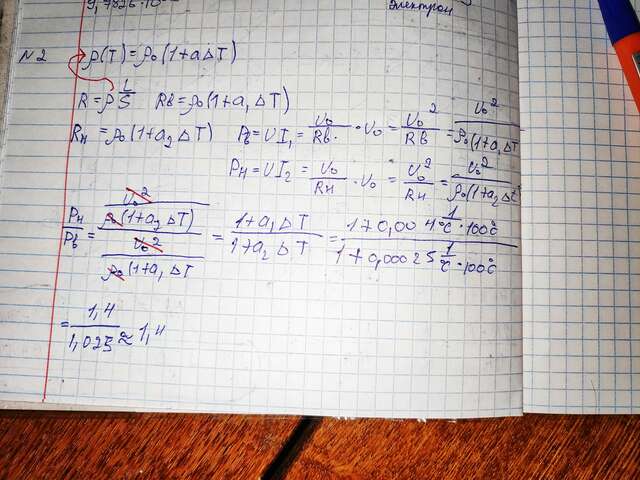 электрон
N2 ρ(T)=ρ₀(1+aΔT)
R=ρ L/S Rв=ρ₀(1+a₁ΔT)
Rн=ρ₀(1+a₂ΔT) Pв=UI₁=U₀/Rв·U₀=U₀²/Rв=U₀²/ρ₀(1+a₁ΔT
Pн=UI₂=U₀/Rн·U₀=U₀²/Rн=U₀²/ρ₀(1+a₂Δt
Pн/Pв=(U₀²/ρ₀(1+a₂ΔT))/(U₀²/ρ₀(1+a₁ΔT)=(1+a₁ΔT)/(1+a₂ΔT)=(1+0,004 1/°C·100°C)/(1+0,00025 1/°C·100°C)
=1,4/1,025≈1,4